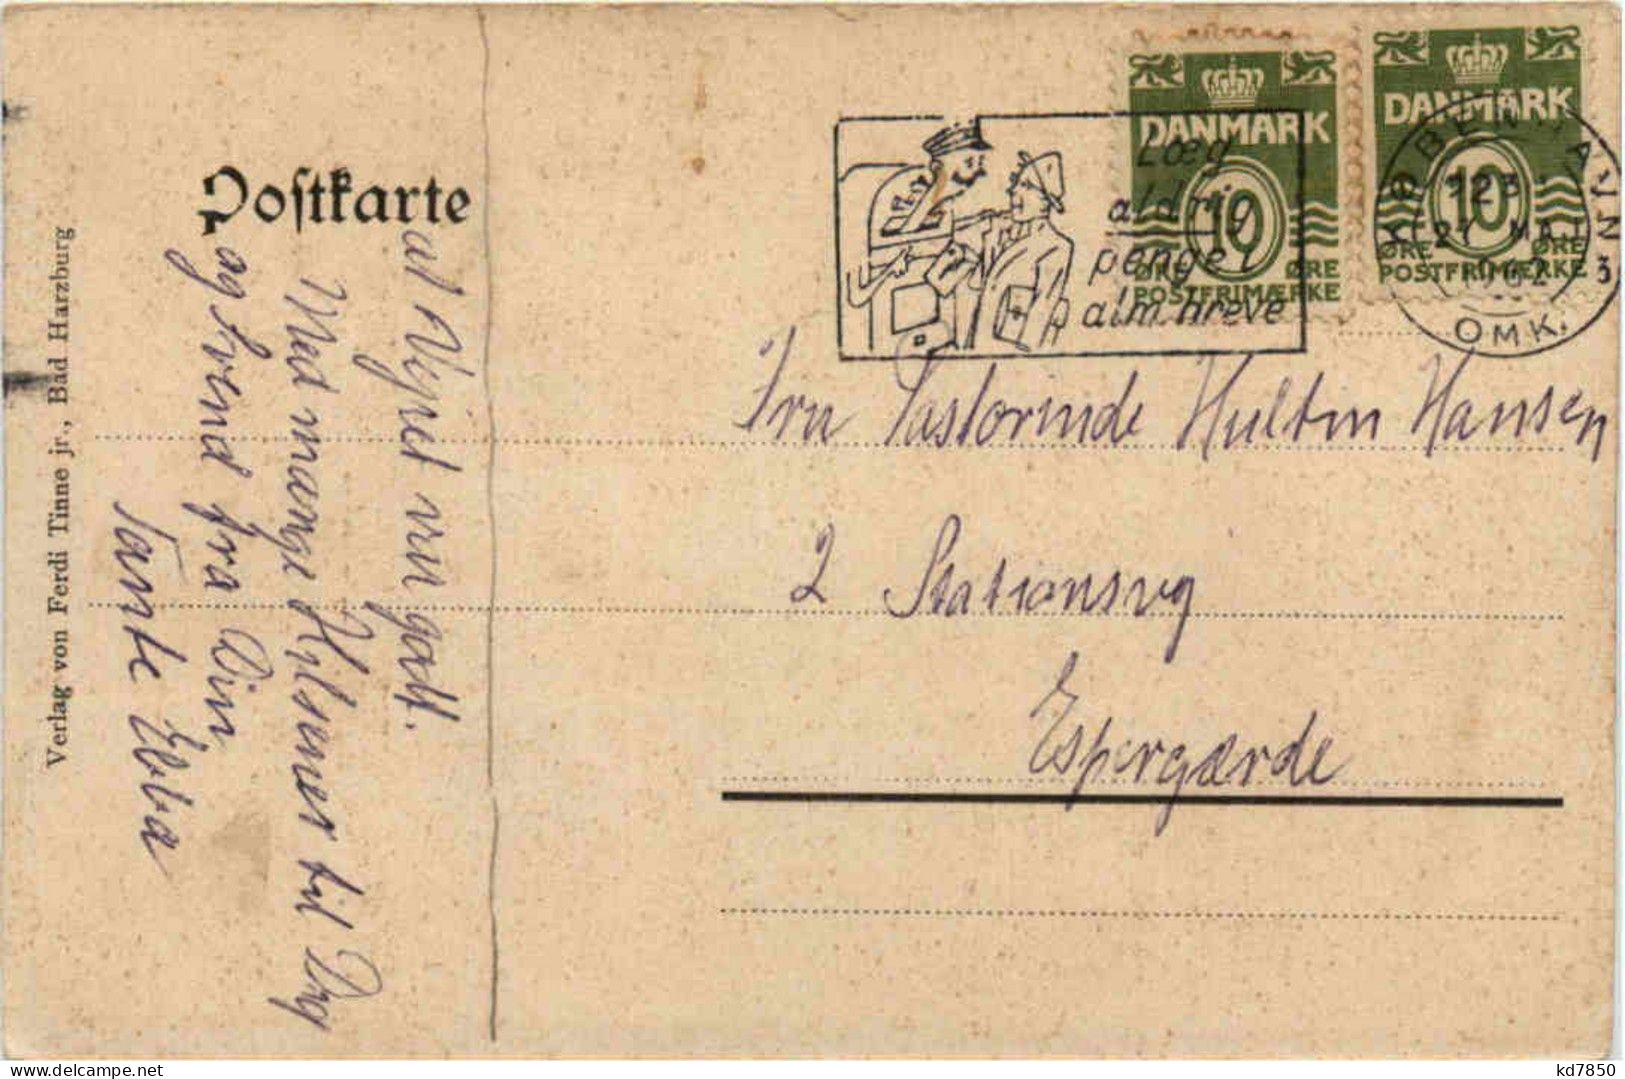 Postkarte
Verlag von Ferdi Tinne jr., Bad Harzburg
at Vejret var godt.
Med mange Hilsener til Dig
og Svend fra Din
Tante Ebba
DANMARK
10
ØRE ØRE
POSTFRIMÆRKE
DANMARK
10
ØRE ØRE
POSTFRIMÆRKE
Læg
aldrig
penge i
alm. breve
KØBENHAVN
27 MAJ
1962
3
OMK.
Fru Pastorinde Hultin Hansen
2 Stationsvej
Espergærde
kd7850